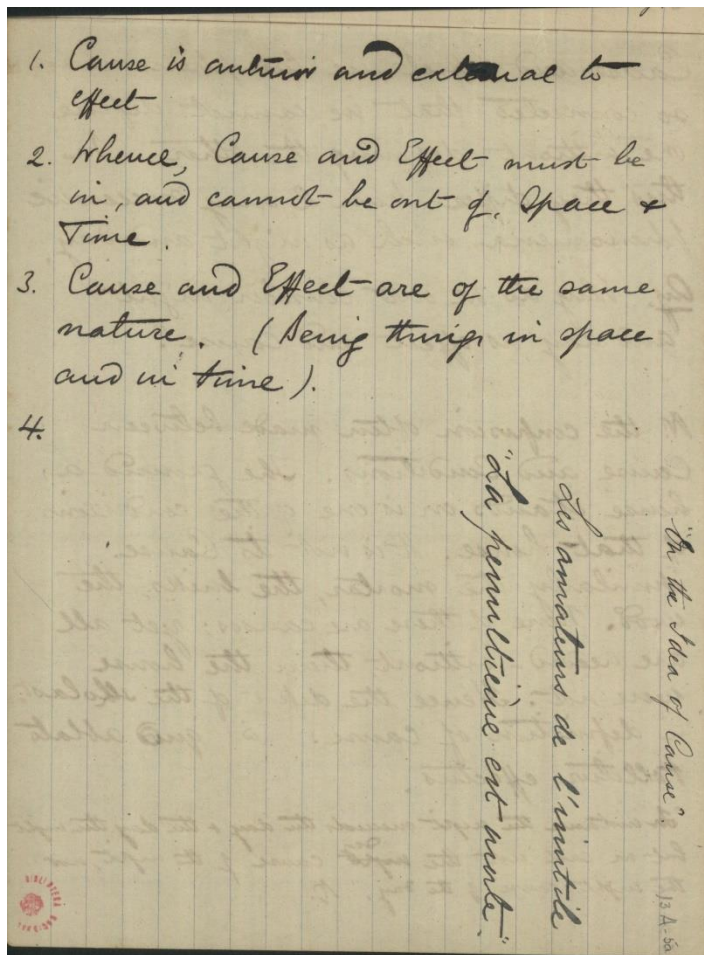 1. Cause is anterior and external to
effect
2. Whence, Cause and Effect must be
in, and cannot be out of, Space +
Time.
3. Cause and Effect are of the same
nature. (Being things in space
and in time).
4.
"La penultième est morte."
Les amateurs de l'inutile
"On the Idea of Cause".
13 A-50